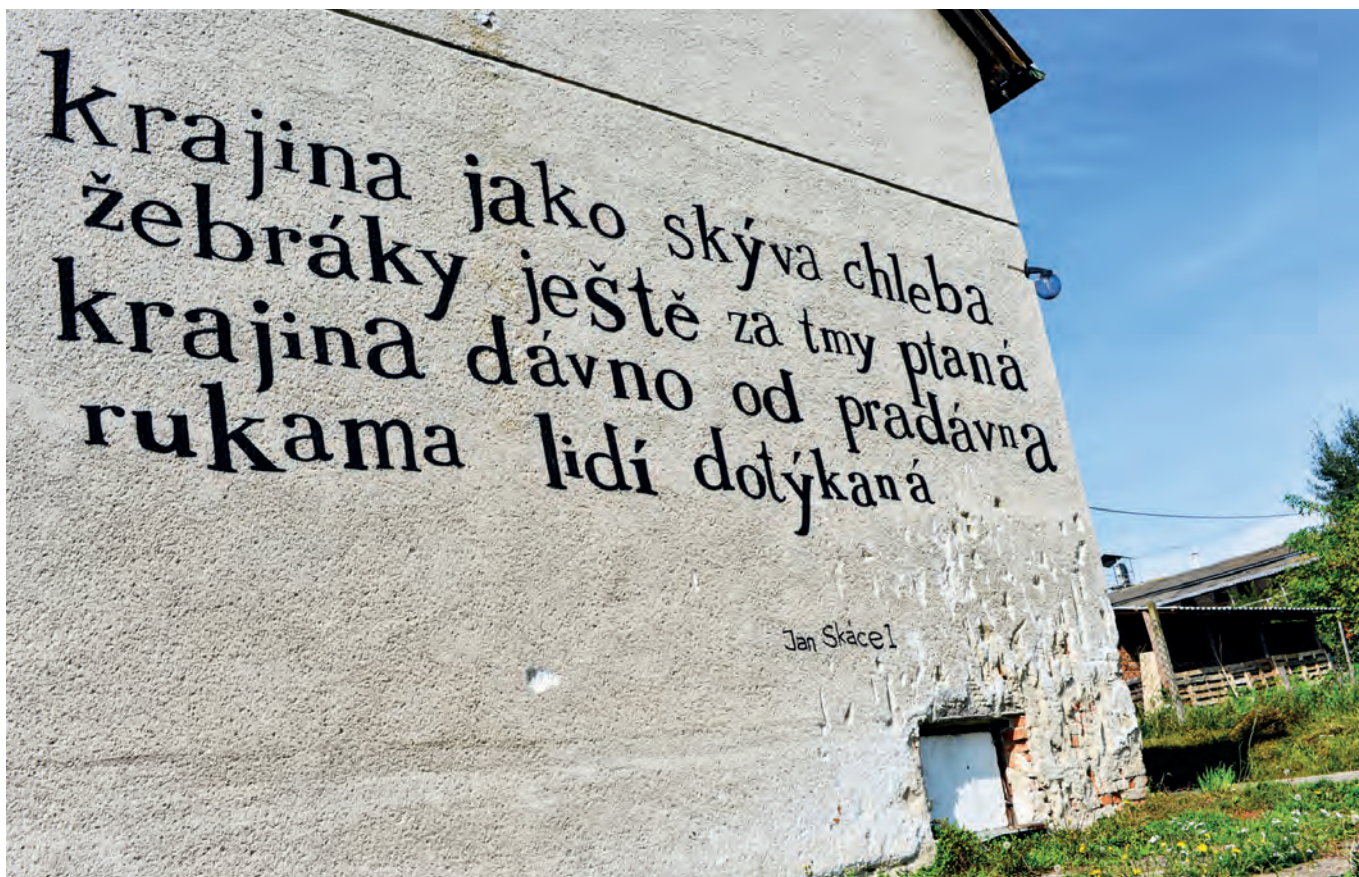 krajina jako skýva chleba
žebráky ještě za tmy ptaná
krajina dávno od pradávna
rukama lidí dotýkaná
Jan Skácel